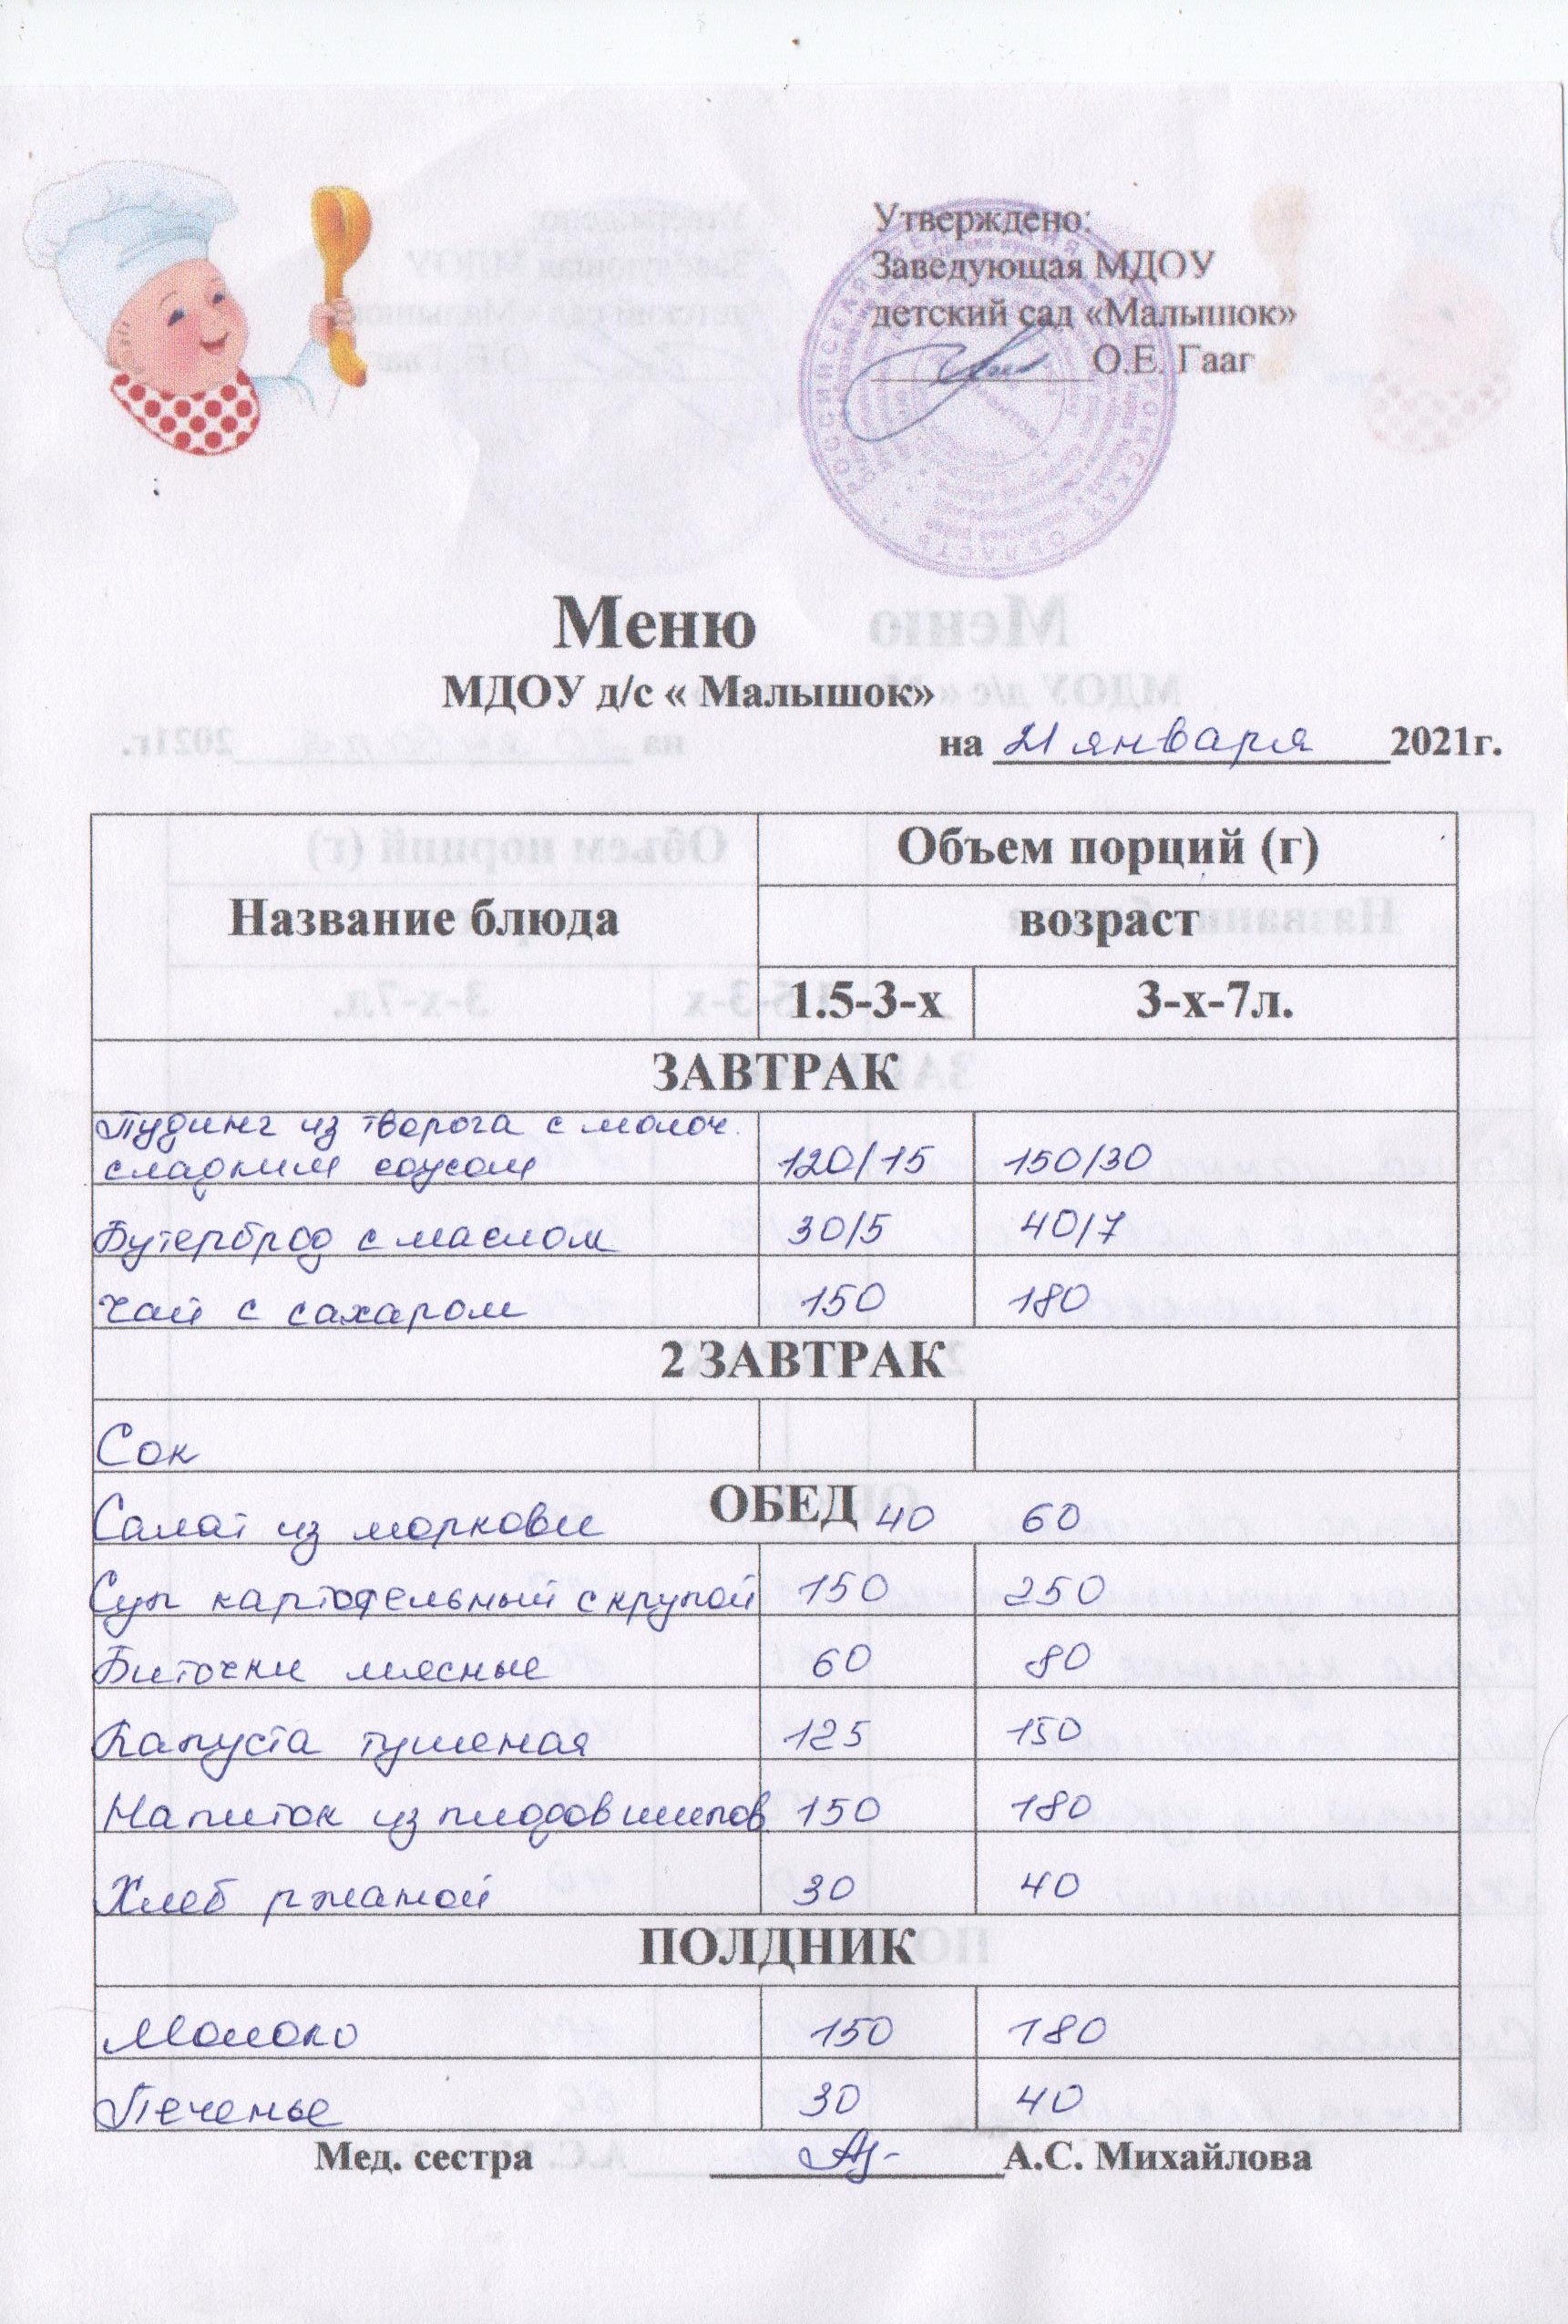 Утверждено:
Заведующая МДОУ
детский сад «Малышок»
О.Е. Гааг
Меню
МДОУ д/с « Малышок»
на 21 января 2021г.
Название блюда
Объем порций (г)
возраст
1.5-3-х 3-х-7л.
ЗАВТРАК
Пудинг из творога с молоч.
сладким соусом 120/15 150/30
Бутерброд с маслом 30/5 40/7
Чай с сахаром 150 180
2 ЗАВТРАК
Сок
ОБЕД
Салат из моркови 40 60
Суп картофельный с крупой 150 250
Биточки мясные 60 80
Капуста тушеная 125 150
Напиток из плодов шипов. 150 180
Хлеб ржаной 30 40
ПОЛДНИК
Молоко 150 180
Печенье 30 40
Мед. сестра А.С. Михайлова